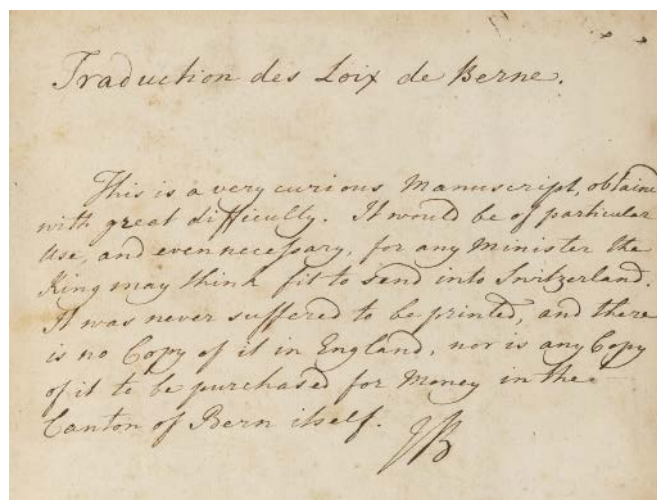 Traduction des Loix de Berne.
This is a very curious Manuscript, obtaine
with great difficulty. It would be of particular
Use, and even necessary, for any Minister the
King may think fit to send into Switzerland.
It was never suffered to be printed, and there
is no Copy of it in England, nor is any Copy
of it to be purchased for Money in the
Canton of Bern itself.
JB